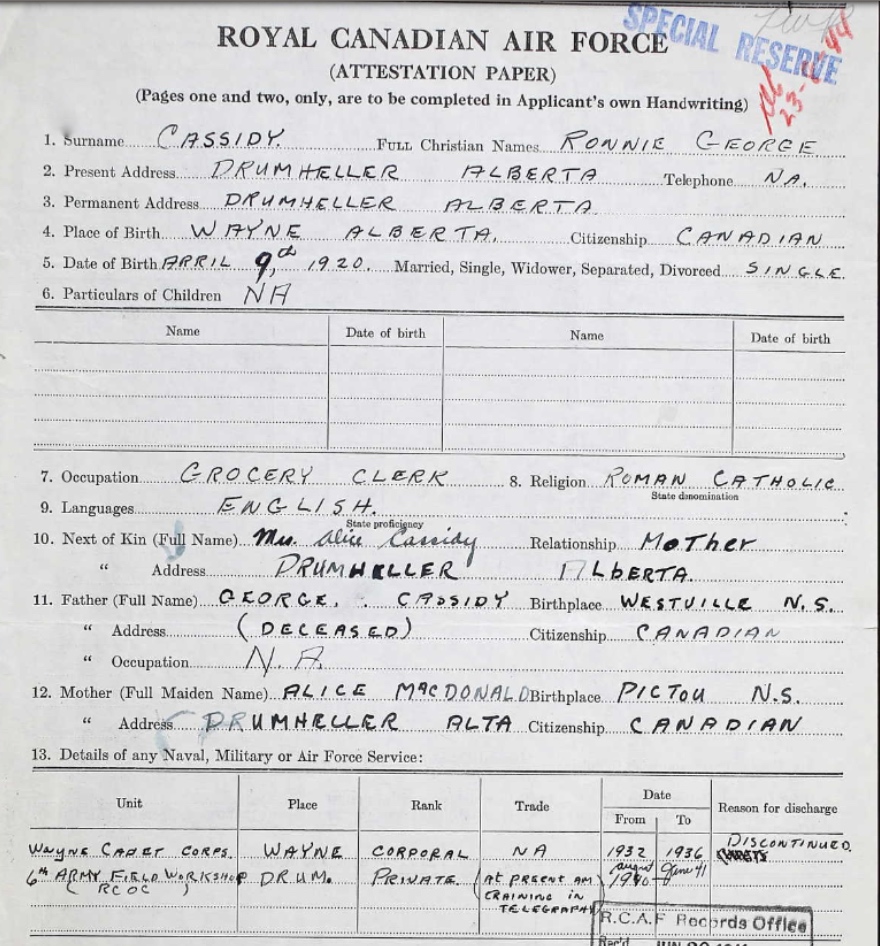 SPECIAL RESERVE
ROYAL CANADIAN AIR FORCE
(ATTESTATION PAPER)
(Pages one and two, only, are to be completed in Applicant's own Handwriting)
1. Surname CASSIDY. FULL Christian Names RONNIE GEORGE
2. Present Address DRUMHELLER ALBERTA Telephone NA.
3. Permanent Address DRUMHELLER ALBERTA
4. Place of Birth WAYNE ALBERTA. Citizenship CANADIAN
5. Date of Birth APRIL 9th, 1920. Married, Single, Widower, Separated, Divorced SINGLE.
6. Particulars of Children NA
Name Date of birth Name Date of birth
7. Occupation GROCERY CLERK 8. Religion ROMAN CATHOLIC
State denomination
9. Languages ENGLISH.
State proficiency
10. Next of Kin (Full Name) Mrs. Alice Cassidy Relationship MOTHER
" Address DRUMHELLER ALBERTA.
11. Father (Full Name) GEORGE, CASSIDY Birthplace WESTVILLE N.S.
" Address (DECEASED) Citizenship CANADIAN
" Occupation N.A.
12. Mother (Full Maiden Name) ALICE MACDONALD Birthplace PICTOU N.S.
" Address DRUMHELLER ALTA Citizenship CANADIAN
13. Details of any Naval, Military or Air Force Service:
Unit Place Rank Trade Date Reason for discharge
From To
WAYNE CADET CORPS. WAYNE CORPORAL NA 1932 1936 DISCONTINUED.
6th ARMY FIELD WORKSHOP DRUM. PRIVATE (AT PRESENT AM August 1940 June 41
(RCOC) TRAINING IN
TELEGRAPHY)
R.C.A.F Records Office
Rec'd